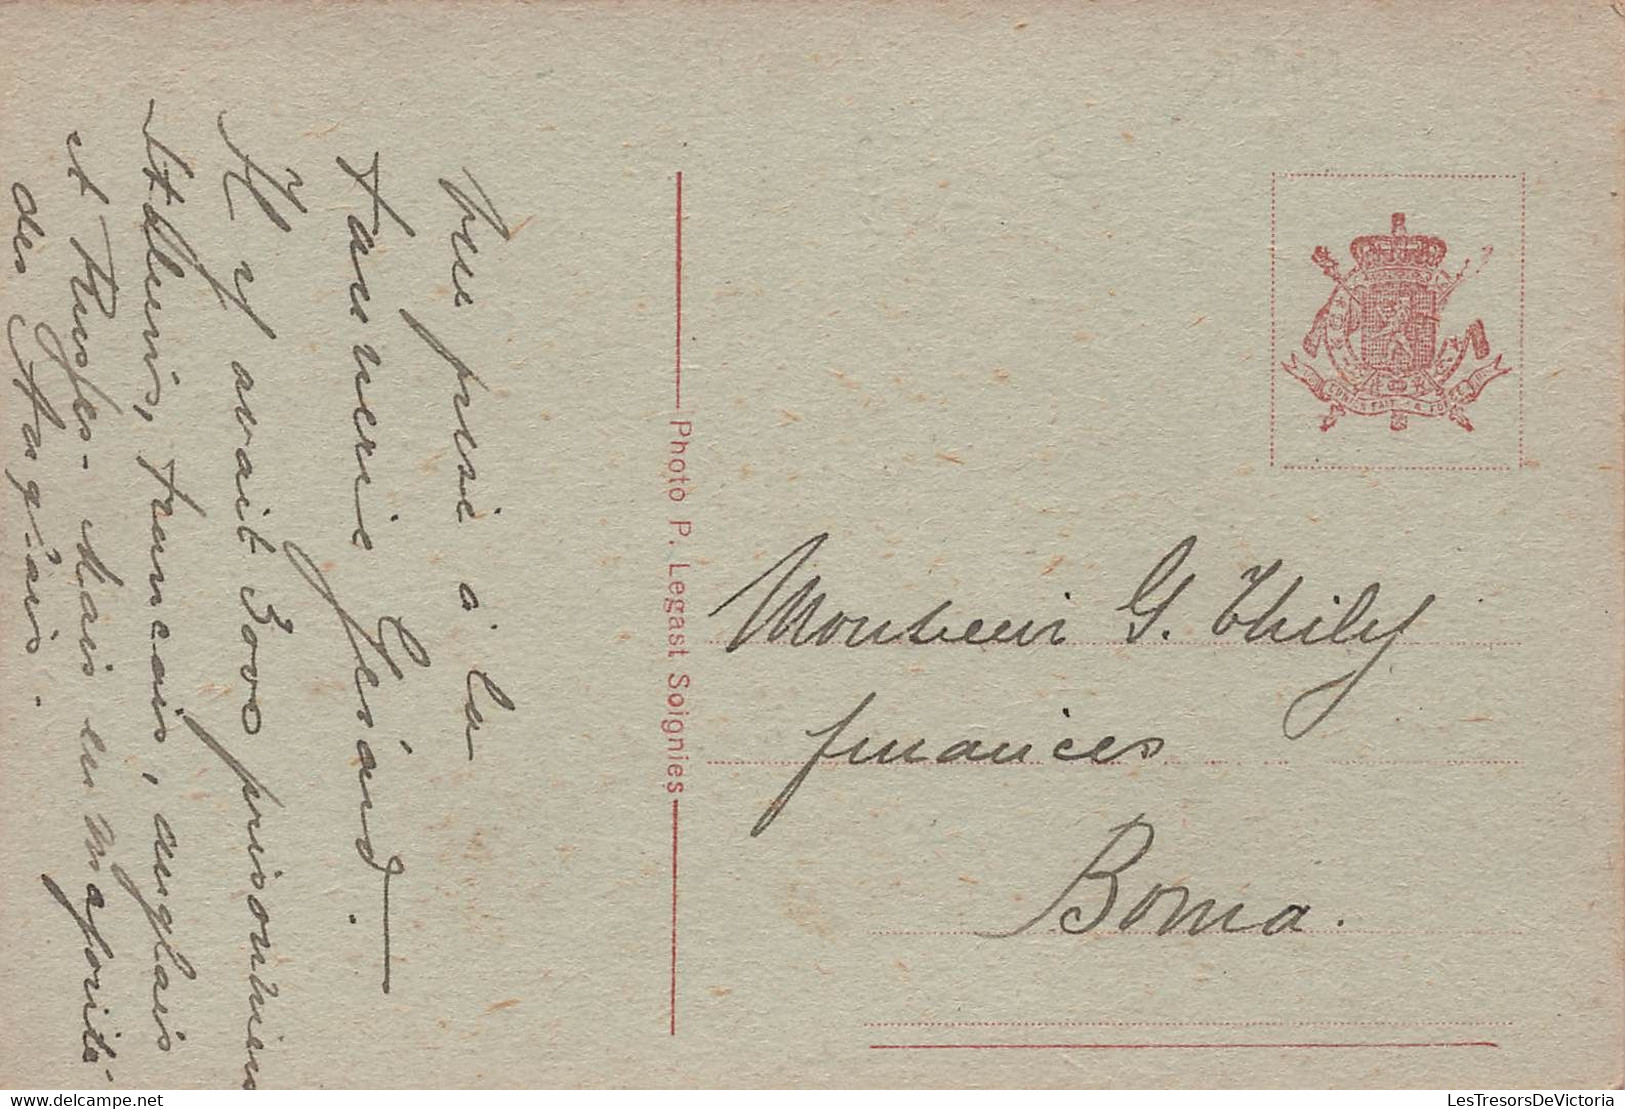 Vue prise à la
tannerie Gérard.
Il y avait 3000 prisonniers
Italiens, français, anglais
et Russes - Mais en majorité
des Anglais.
Photo P. Legast Soignies
L'UNION FAIT LA FORCE
Monsieur G. Thily
finances
Boma.
LesTresorsDeVictoria
delcampe.net